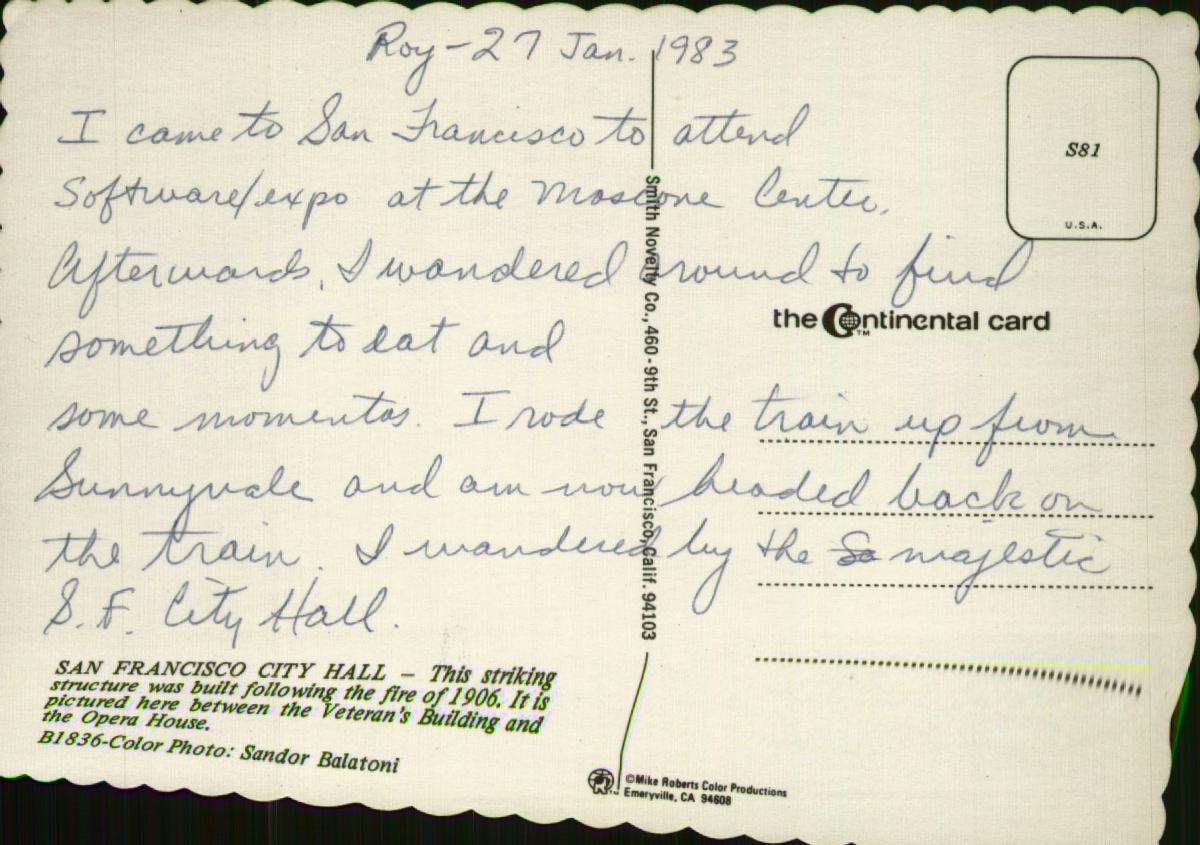 Roy - 27 Jan. 1983
I came to San Francisco to attend
Software/expo at the Moscone Center.
Afterwards, I wandered around to find
something to eat and
some momentos. I rode the train up from
Sunnyvale and am now headed back on
the train. I wandered by the So majestic
S.F. City Hall.
SAN FRANCISCO CITY HALL – This striking
structure was built following the fire of 1906. It is
pictured here between the Veteran's Building and
the Opera House.
B1836-Color Photo: Sandor Balatoni
Smith Novelty Co., 460 - 9th St., San Francisco, Calif. 94103
S81
U.S.A.
the Continental card
TM
©Mike Roberts Color Productions
Emeryville, CA 94608